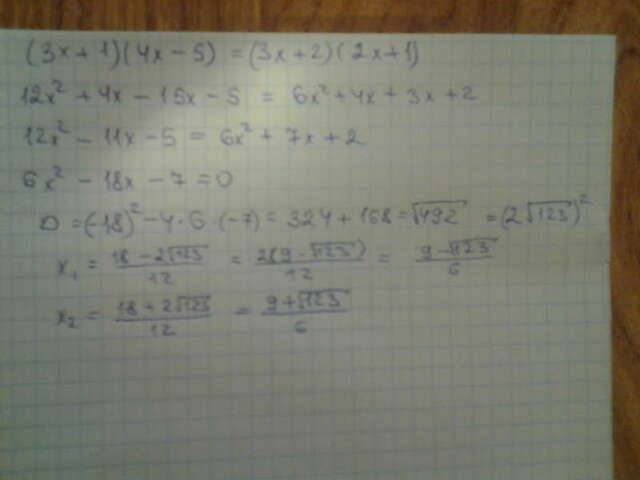 (3x+1)(4x-5) = (3x+2)(2x+1)
12x² + 4x - 15x - 5 = 6x² + 4x + 3x + 2
12x² - 11x - 5 = 6x² + 7x + 2
6x² - 18x - 7 = 0
D = (-18)² - 4·6·(-7) = 324 + 168 = √492 = (2√123)²
x₁ = (18 - 2√123)/12 = 2(9 - √123)/12 = (9 - √123)/6
x₂ = (18 + 2√123)/12 = (9 + √123)/6